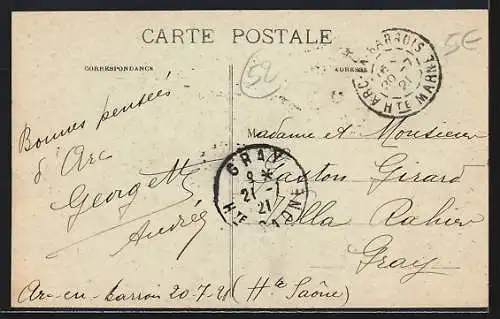 CARTE POSTALE
CORRESPONDANCE
ADRESSE
52
5€
ARC-EN-BARROIS
20-7
21
HTE MARNE
Bonnes pensées
d'Arc
Georgette
Andrée
Arc-en-Barrois 20-7-21
GRAY
9 *
21-7
21
HTE SAONE
Madame et Monsieur
Gaston Girard
Villa Rahier
Gray
(Hte Saône)